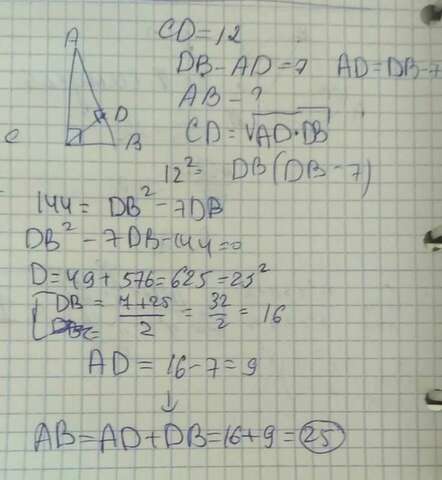 A
D
B
c
CD=12
DB-AD=7 AD=DB-7
AB-?
CD=√AD·DB
12²= DB(DB-7)
144= DB²-7DB
DB²-7DB-144=0
D=49+576=625=25²
DB = 7+25/2 = 32/2 = 16
AD = 16-7=9
↓
AB=AD+DB=16+9=25